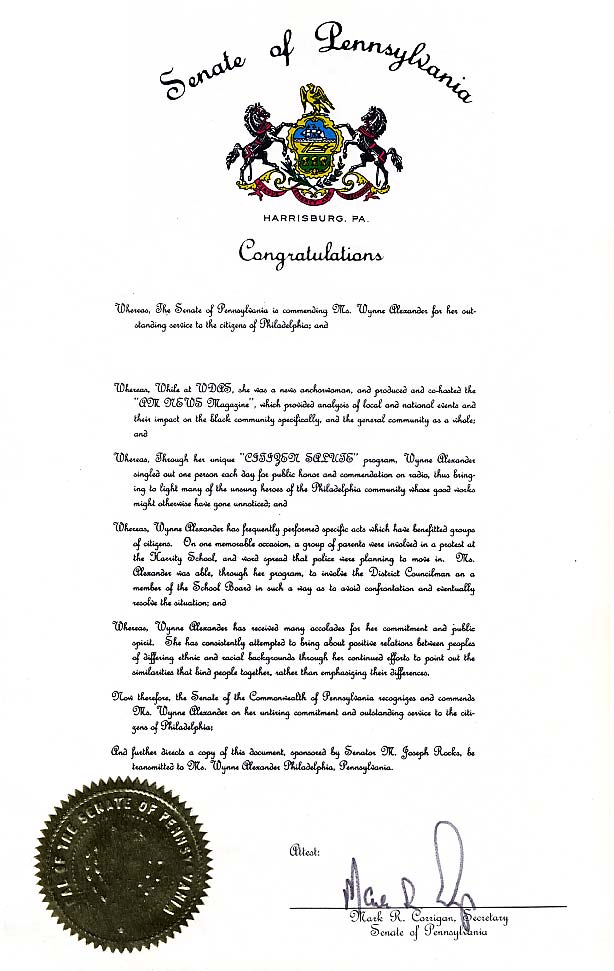 Senate of Pennsylvania
HARRISBURG, PA.
Congratulations
Whereas, The Senate of Pennsylvania is commending Ms. Wynne Alexander for her out-
standing service to the citizens of Philadelphia; and
Whereas, While at WDAS, she was a news anchorwoman, and produced and co-hosted the
"AM NEWS Magazine", which provided analysis of local and national events and
their impact on the black community specifically, and the general community as a whole;
and
Whereas, Through her unique "CITIZEN SALUTE" program, Wynne Alexander
singled out one person each day for public honor and commendation on radio, thus bring-
ing to light many of the unsung heroes of the Philadelphia community whose good works
might otherwise have gone unnoticed; and
Whereas, Wynne Alexander has frequently performed specific acts which have benefitted groups
of citizens. On one memorable occasion, a group of parents were involved in a protest at
the Harrity School, and word spread that police were planning to move in. Ms.
Alexander was able, through her program, to involve the District Councilman an a
member of the School Board in such a way as to avoid confrontation and eventually
resolve the situation; and
Whereas, Wynne Alexander has received many accolades for her commitment and public
spirit. She has consistently attempted to bring about positive relations between peoples
of differing ethnic and racial backgrounds through her continued efforts to point out the
similarities that bind people together, rather than emphasizing their differences.
Now therefore, the Senate of the Commonwealth of Pennsylvania recognizes and commends
Ms. Wynne Alexander on her untiring commitment and outstanding service to the citi-
zens of Philadelphia;
And further directs a copy of this document, sponsored by Senator M. Joseph Rocks, be
transmitted to Ms. Wynne Alexander Philadelphia, Pennsylvania.
SEAL OF THE SENATE OF PENNSYLVANIA
Attest:
Mark R. Corrigan, Secretary
Senate of Pennsylvania